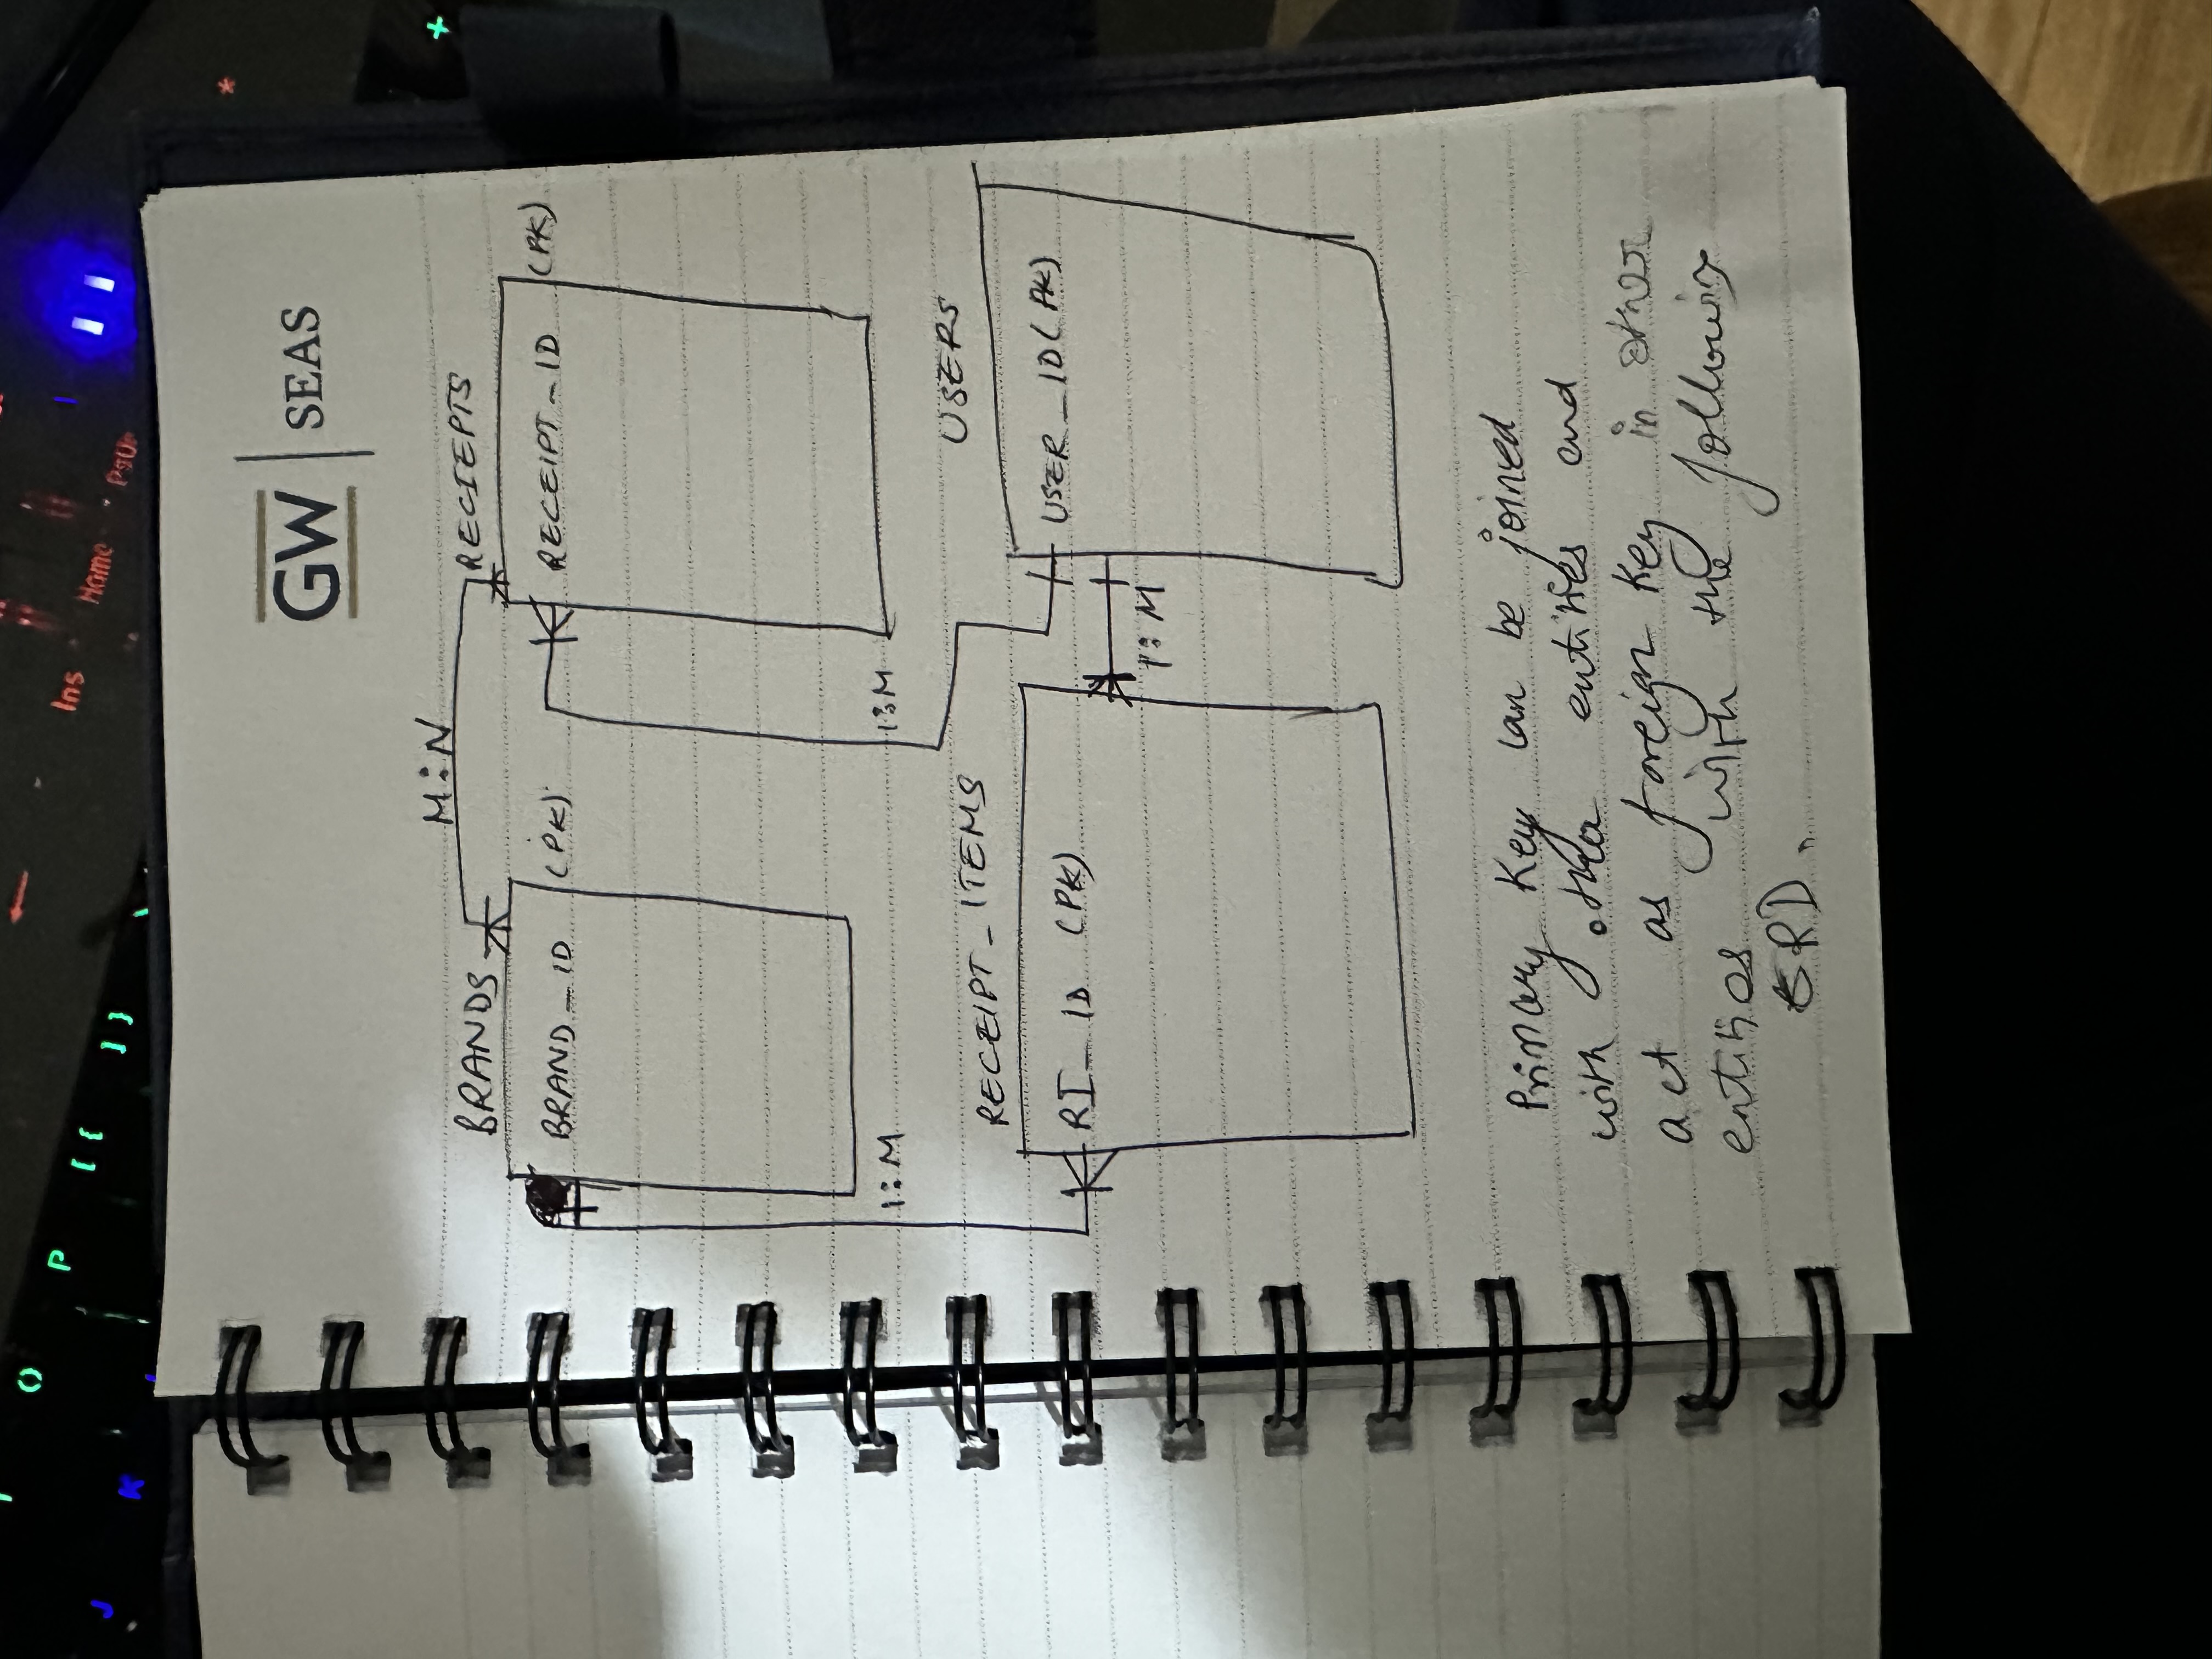 O
P
[ {
] }
J
K
Ins
Home
PgUp
*
+
GW | SEAS
M:N
BRANDS
RECIEPTS
BRAND_ID (PK)
RECEIPT_ID (PK)
1:M
1:M
RECEIPT_ITEMS
USERS
RI_ID (PK)
USER_ID (PK)
1:M
Primary Key can be joined
with other entities and
act as foreign key in other
entities with the following
ERD.